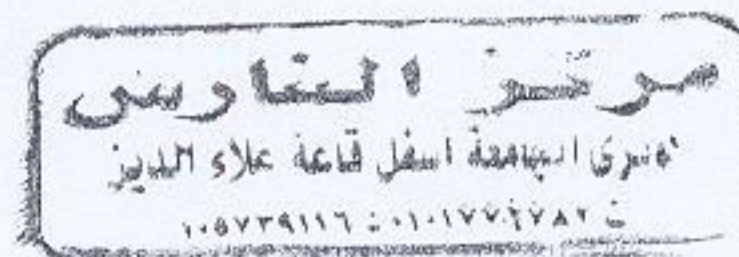 مركز الفاروس
كوبرى الجامعة اسفل قاعة علاء الدين
ت ٠١٠١٧٧٢٧٨٢ : ١٠٥٧٣٩١١٦